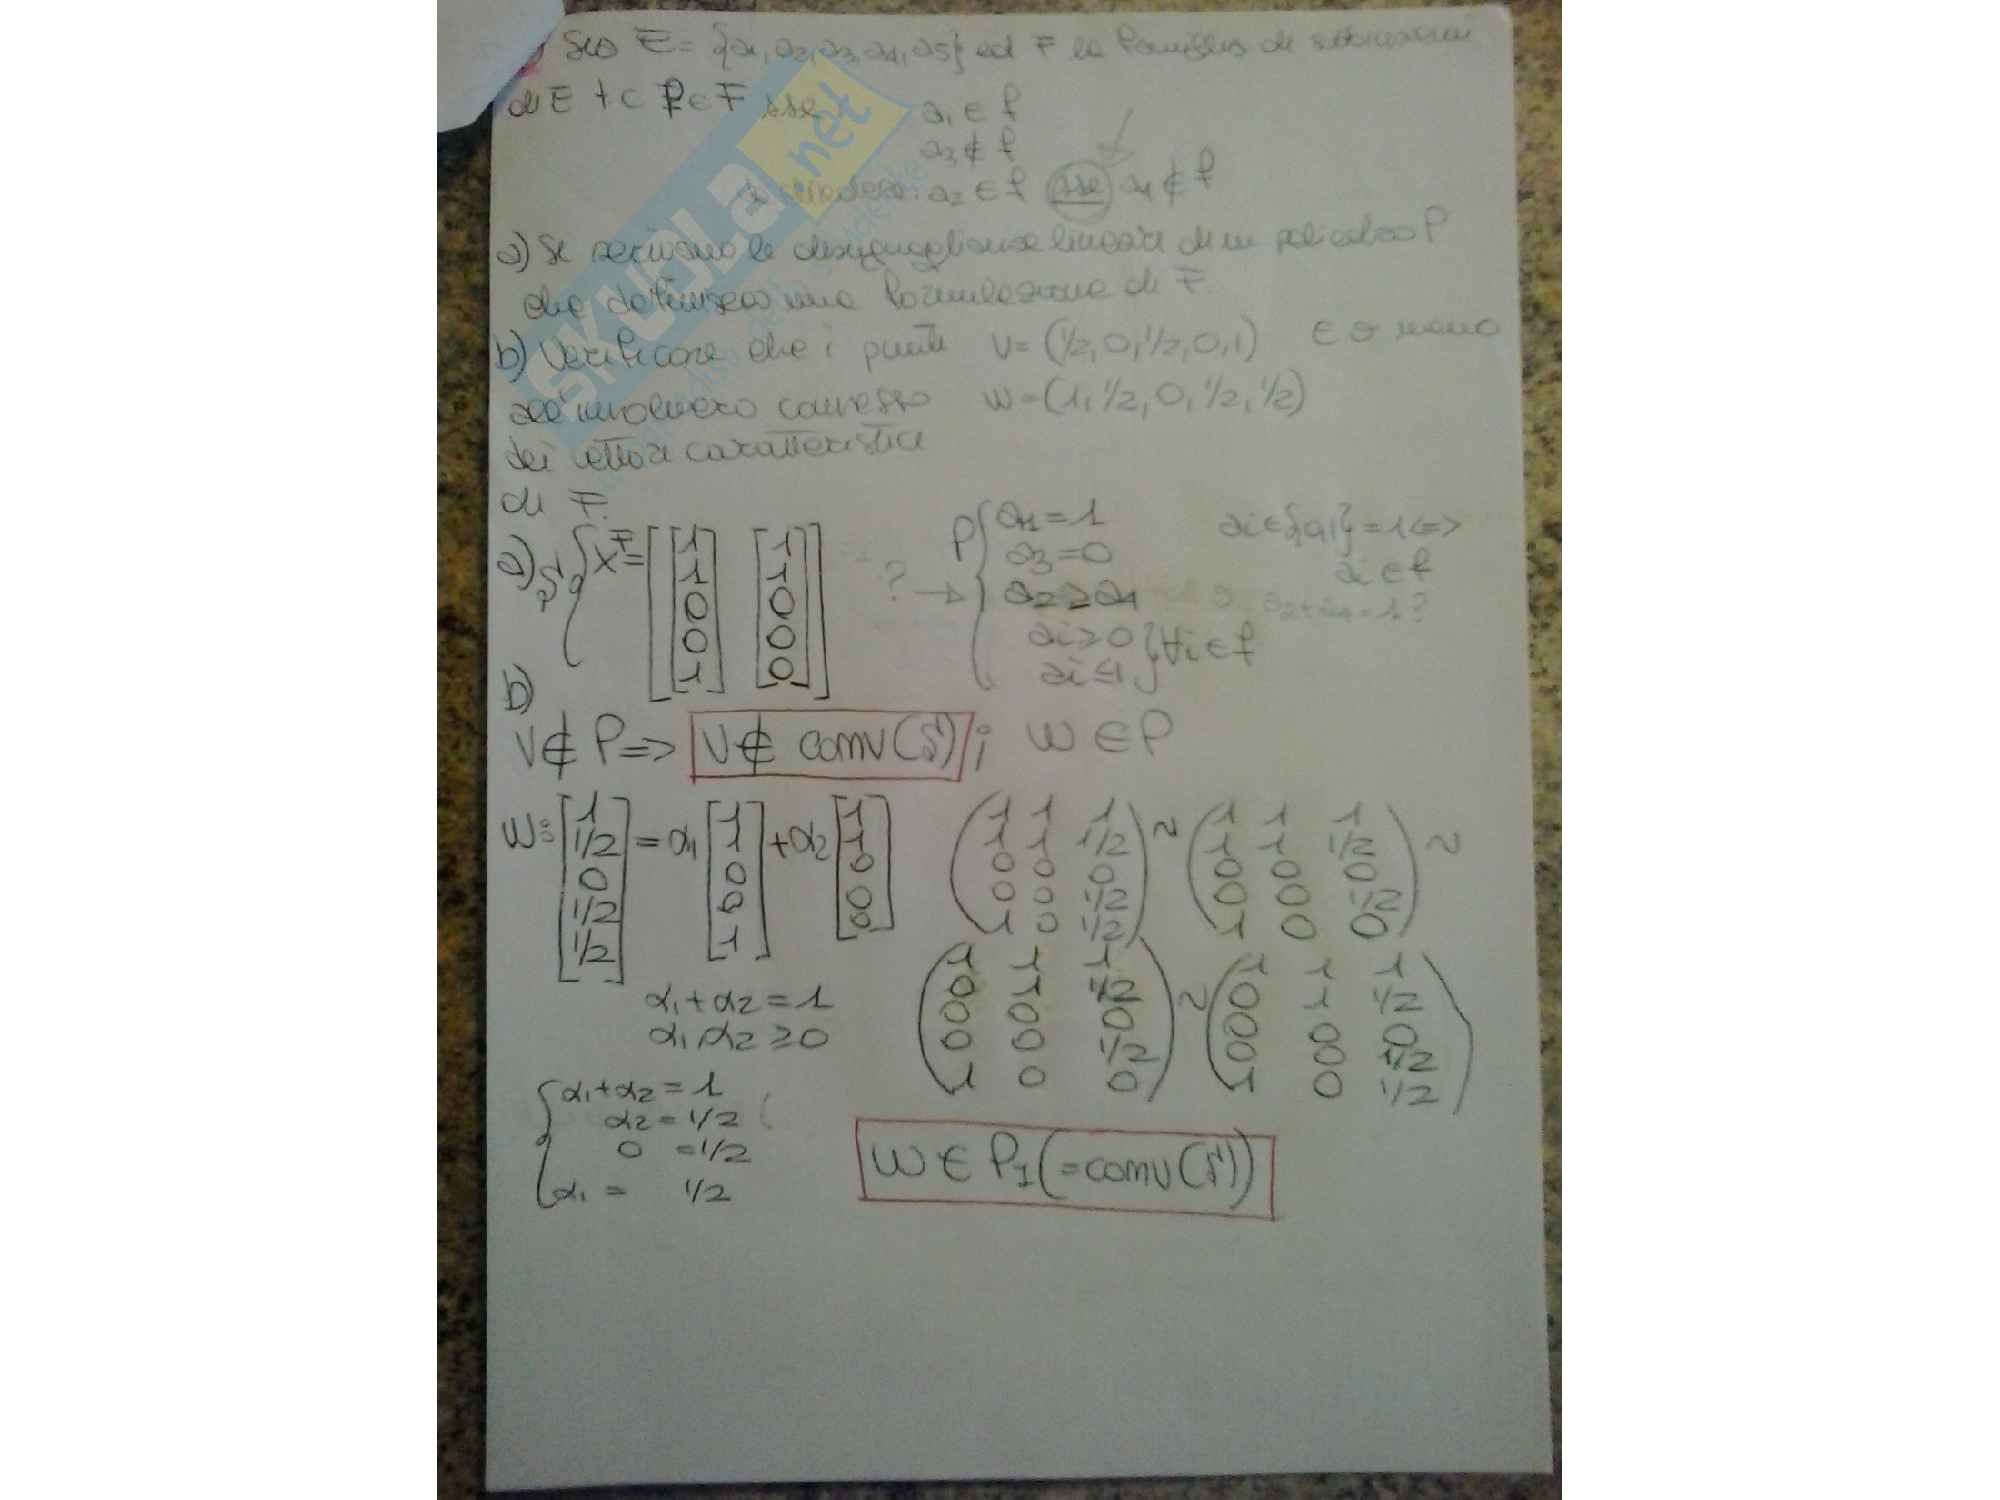 Sia E = {a1, a2, a3, a4, a5} ed F la famiglia di sottoinsiemi
di E t c f ∈ F sse a1 ∈ f
a3 ∉ f
a2 ∈ f sse a4 ∉ f
a) Si scrivano le disuguaglianze lineari di un poliedro P
che definisca una formulazione di F.
b) Verificare che i punti V = (1/2, 0, 1/2, 0, 1) E o meno
all'involucro convesso W = (1, 1/2, 0, 1/2, 1/2)
dei vettori caratteristici
di F.
a) S { x^F = [ [1 1 0 0 1] [1 1 0 0 0] ] ? → P { a1 = 1
a3 = 0
a2 ≥ a4
ai ≥ 0
ai ≤ 1 } ∀i ∈ f
ai ∈ {0,1} = 1 <=>
ai ∈ f
a2 + a4 = 1 ?
b)
V ∉ P => V ∉ conv(S) ; W ∈ P
W: [1 1/2 0 1/2 1/2] = α1 [1 1 0 0 1] + α2 [1 1 0 0 0]
(1 1 1
1 1 1/2
0 0 0
0 0 1/2
1 0 1/2) ~
(1 1 1
1 1 1/2
0 0 0
0 0 1/2
1 0 0) ~
(1 1 1
0 1 1/2
0 0 0
0 0 1/2
1 0 0) ~
(1 1 1
0 1 1/2
0 0 0
0 0 1/2
1 0 1/2)
α1 + α2 = 1
α1, α2 ≥ 0
{ α1 + α2 = 1
α2 = 1/2
0 = 1/2
α1 = 1/2
W ∈ PI (= conv(S))
SKUOLA.net